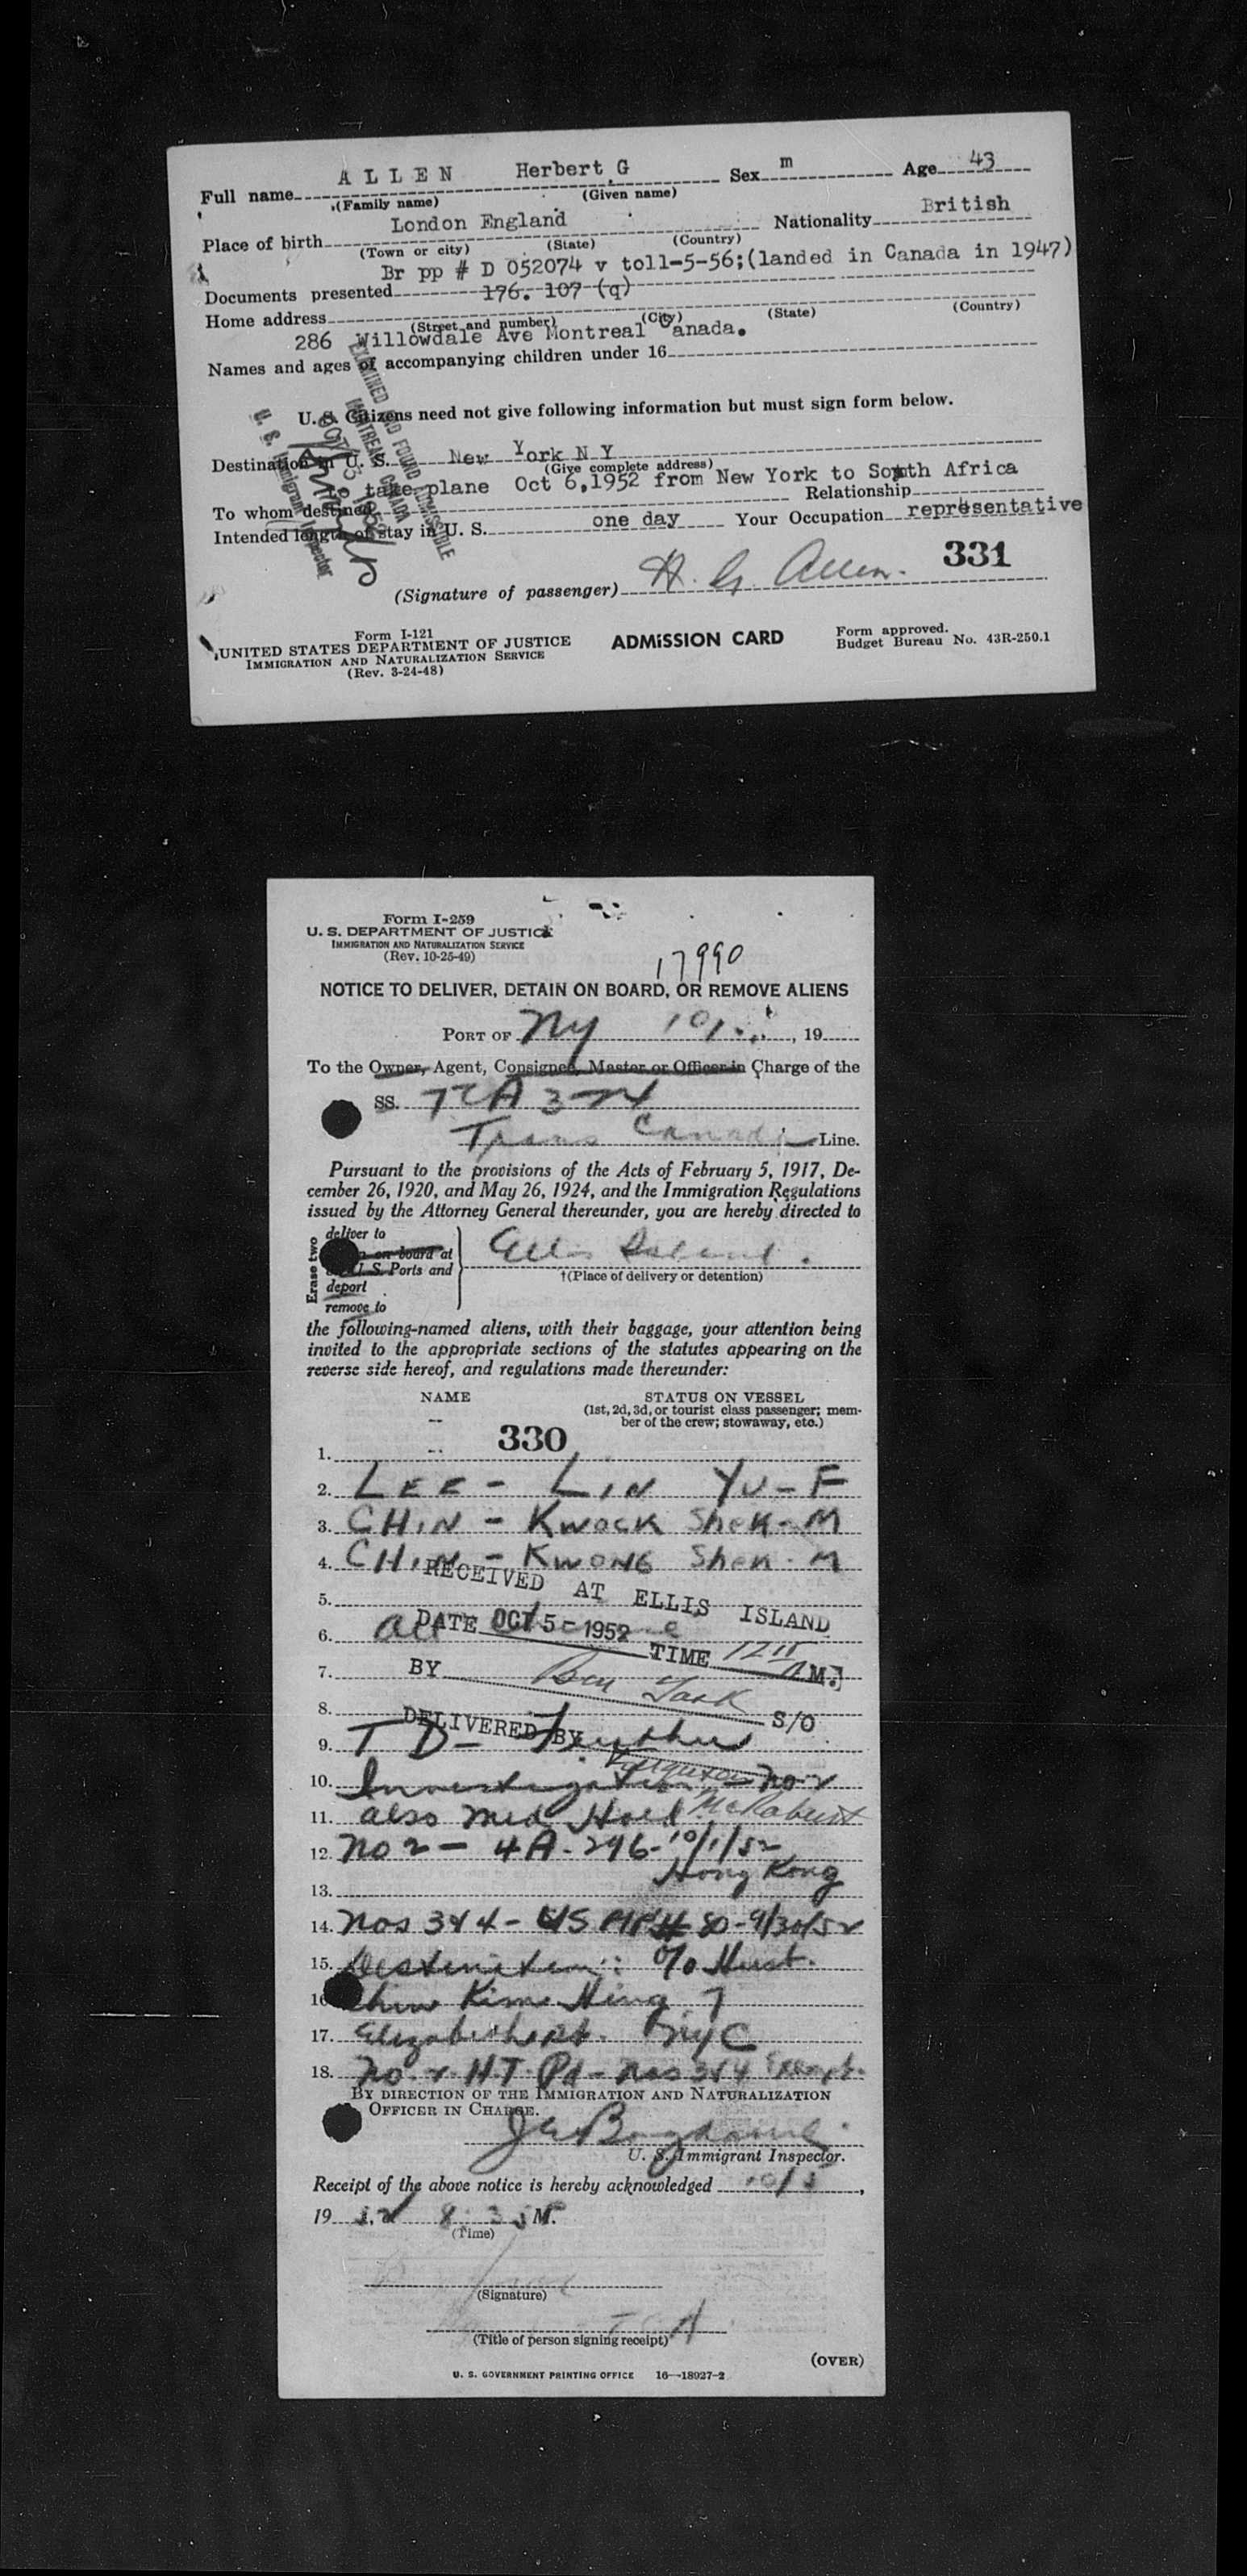 Full name ALLEN Herbert G Sex m Age 43
(Family name) (Given name)
Place of birth London England Nationality British
(Town or city) (State) (Country)
Br pp # D 052074 v toll-5-56;(landed in Canada in 1947)
Documents presented 176. 107 (q)
Home address
(Street and number) (City) (State) (Country)
286 Willowdale Ave Montreal Canada.
Names and ages of accompanying children under 16
U. S. Citizens need not give following information but must sign form below.
Destination in U. S. New York N Y
(Give complete address)
take plane Oct 6,1952 from New York to South Africa
To whom destined Relationship
Intended length of stay in U. S. one day Your Occupation representative
EXAMINED AND FOUND ADMISSIBLE
MONTREAL CANADA
OCT 3 1952
U. S. Immigrant Inspector
331
(Signature of passenger) H. G. Allen.
Form I-121
UNITED STATES DEPARTMENT OF JUSTICE
IMMIGRATION AND NATURALIZATION SERVICE
(Rev. 3-24-48)
ADMISSION CARD
Form approved.
Budget Bureau No. 43R-250.1
Form I-259
U. S. DEPARTMENT OF JUSTICE
IMMIGRATION AND NATURALIZATION SERVICE
(Rev. 10-25-49)
17990
NOTICE TO DELIVER, DETAIN ON BOARD, OR REMOVE ALIENS
PORT OF NY 10/ , 19
To the Owner, Agent, Consignee, Master or Officer in Charge of the
SS. TCA 324
Trans Canada Line.
Pursuant to the provisions of the Acts of February 5, 1917, De-
cember 26, 1920, and May 26, 1924, and the Immigration Regulations
issued by the Attorney General thereunder, you are hereby directed to
Erase two
deliver to
on board at
U. S. Ports and
deport
remove to
Ellis Island.
†(Place of delivery or detention)
the following-named aliens, with their baggage, your attention being
invited to the appropriate sections of the statutes appearing on the
reverse side hereof, and regulations made thereunder:
NAME STATUS ON VESSEL
(1st, 2d, 3d, or tourist class passenger; mem-
ber of the crew; stowaway, etc.)
330
1.
2. LEE - LIN YU - F
3. CHIN - KWOCK SheK - M
4. CHIN - KWONG Shek - M
RECEIVED AT ELLIS ISLAND
5.
6. All
DATE OCT 5 - 1952 TIME 12 11 A M.
7.
BY
8.
S/O
DELIVERED BY
9. T D - Further
10. Investigation - No 2
Ferguson
11. also Med Hold
12. No 2 - 4A-296-10/1/52
Hong Kong
13.
14. Nos 3 & 4 - 80 - 9/30/52
15. Destination: c/o Husb.
16. Chin Kim Hing 7
17. Elizabeth St. NYC
18. No. 2 H.T. Pd - Nos 3 & 4 Exempt.
BY DIRECTION OF THE IMMIGRATION AND NATURALIZATION
OFFICER IN CHARGE.
U. S. Immigrant Inspector.
Receipt of the above notice is hereby acknowledged 10/5,
19 52 8:35 M.
(Time)
(Signature)
TCA
(Title of person signing receipt)
(OVER)
U. S. GOVERNMENT PRINTING OFFICE 16—18927-2